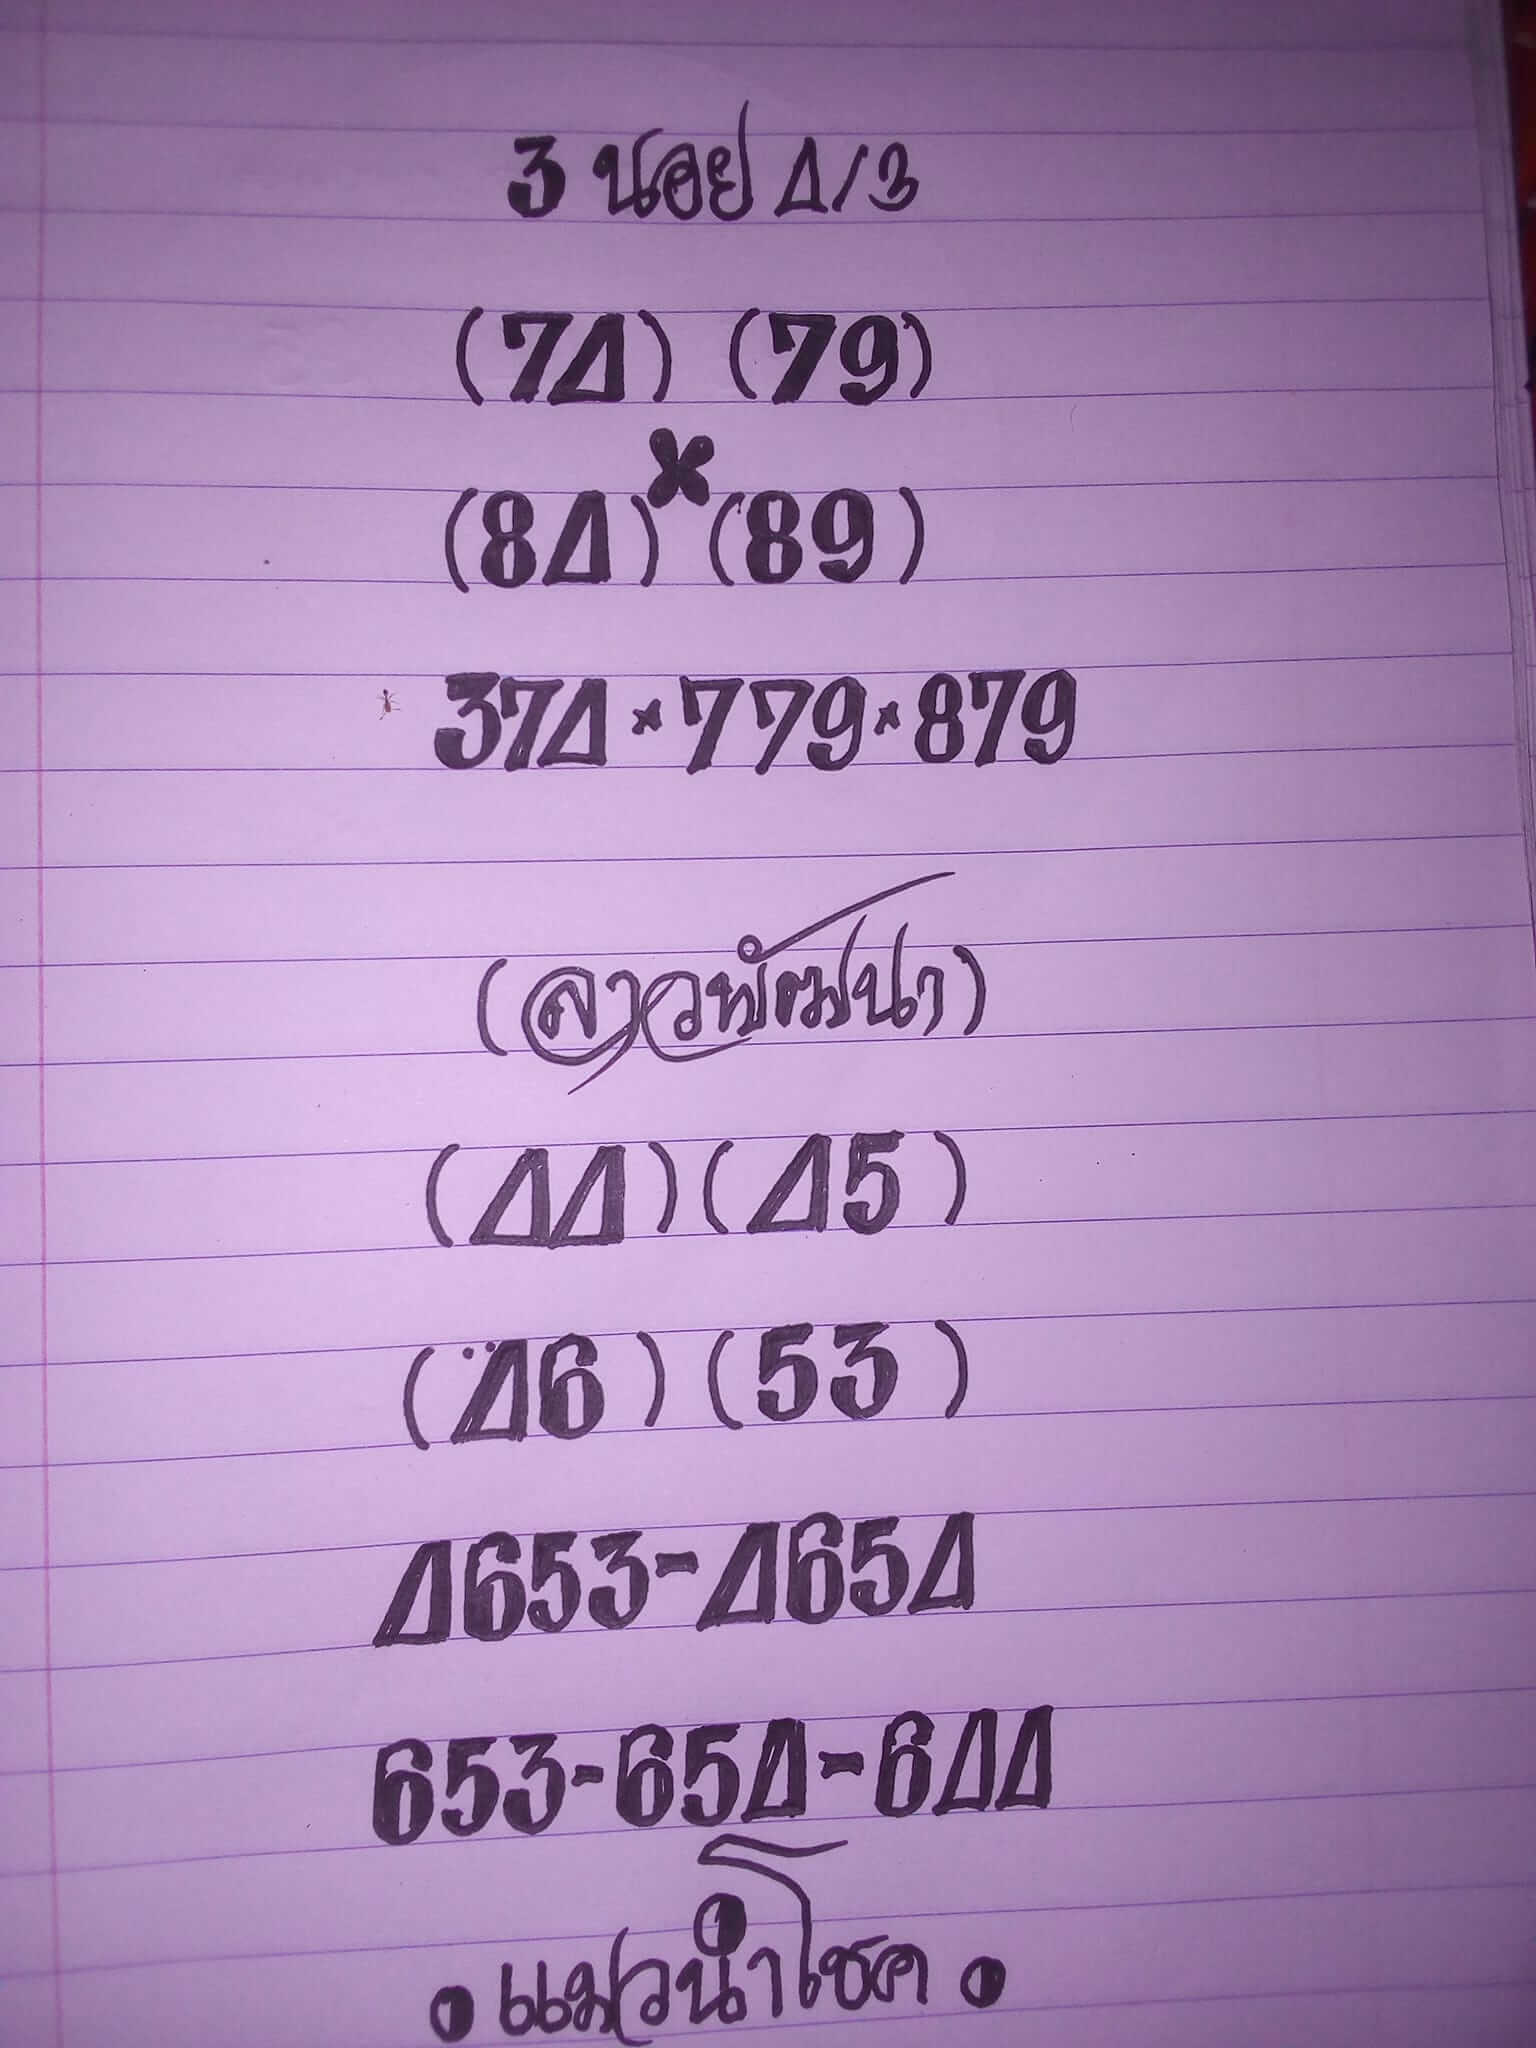 3 นอย 4/3
(74) (79)
x
(84) (89)
374x779x879
(ลาวพัฒนา)
(44)(45)
(46)(53)
4653-4654
653-654-644
•แมวนำโชค•